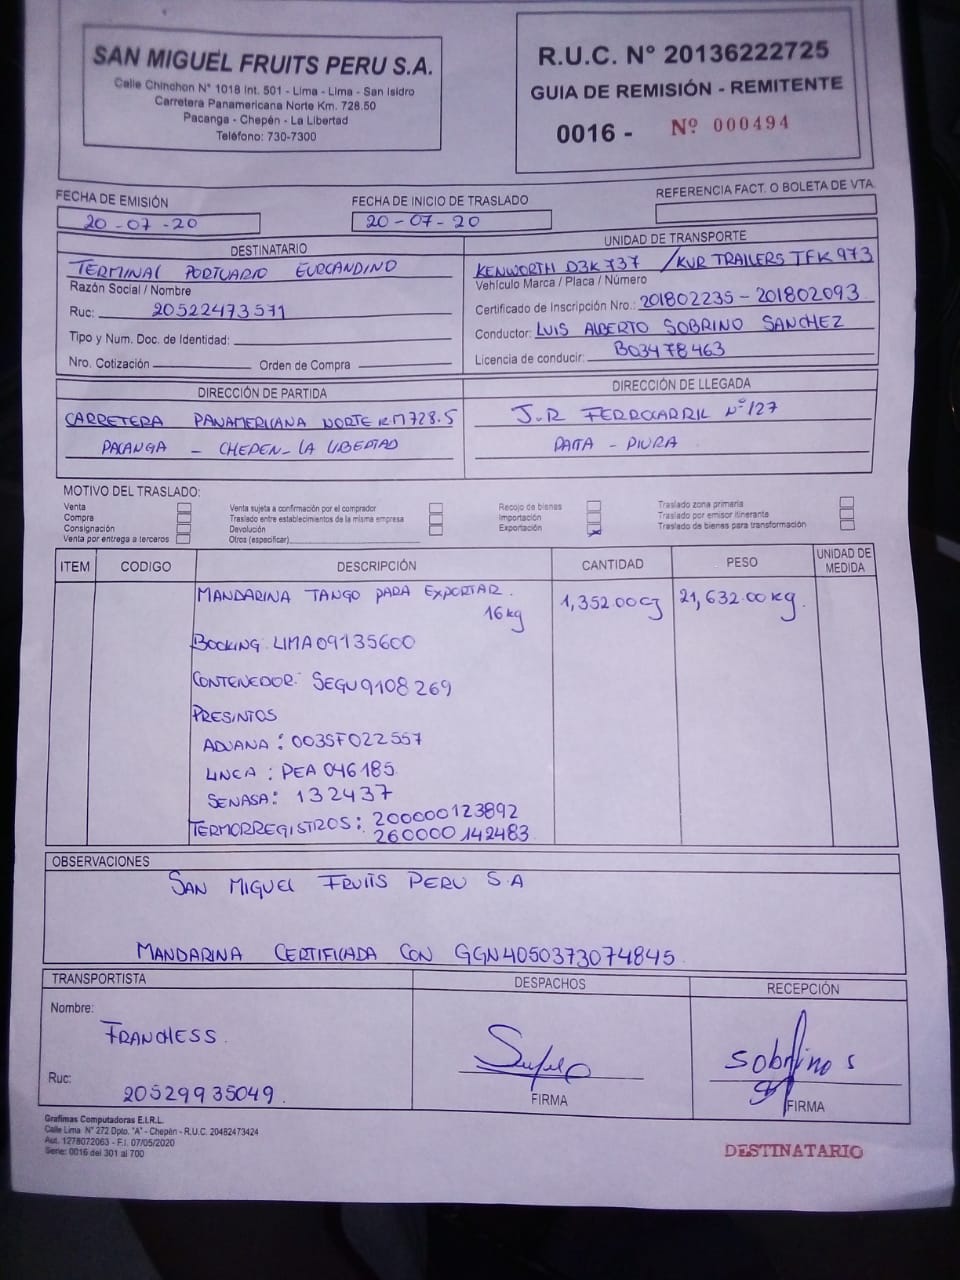 SAN MIGUEL FRUITS PERU S.A.
Calle Chinchon N° 1018 Int. 501 - Lima - Lima - San Isidro
Carretera Panamericana Norte Km. 728.50
Pacanga - Chepén - La Libertad
Teléfono: 730-7300
R.U.C. N° 20136222725
GUIA DE REMISIÓN - REMITENTE
0016 - Nº 000494
FECHA DE EMISIÓN
20-07-20
FECHA DE INICIO DE TRASLADO
20-07-20
REFERENCIA FACT. O BOLETA DE VTA.
DESTINATARIO
TERMINAL PORTUARIO EUROANDINO
Razón Social / Nombre
Ruc: 20522473571
Tipo y Num. Doc. de Identidad:
Nro. Cotización Orden de Compra
UNIDAD DE TRANSPORTE
KENWORTH D3K 737 / KUR TRAILERS TFK 973
Vehículo Marca / Placa / Número
Certificado de Inscripción Nro.: 201802235 - 201802093
Conductor: LUIS ALBERTO SOBRINO SANCHEZ
Licencia de conducir: B03478463
DIRECCIÓN DE PARTIDA
CARRETERA PANAMERICANA NORTE KM728.5
PACANGA - CHEPEN - LA LIBERTAD
DIRECCIÓN DE LLEGADA
J.R FERROCARRIL N°127
PAITA - PIURA
MOTIVO DEL TRASLADO:
Venta
Compra
Consignación
Venta por entrega a terceros
Venta sujeta a confirmación por el comprador
Traslado entre establecimientos de la misma empresa
Devolución
Otros (especificar)
Recojo de bienes
Importación
Exportación
Traslado zona primaria
Traslado por emisor itinerante
Traslado de bienes para transformación
ITEM CODIGO DESCRIPCIÓN CANTIDAD PESO UNIDAD DE MEDIDA
MANDARINA TANGO PARA EXPORTAR. 1,352.00 CJ 21,632.00 kg.
16 kg
BOOKING: LIMA09135600
CONTENEDOR: SEGU9108269
PRESINTOS
ADUANA: 003SF022557
LINEA: PEA 046185
SENASA: 132437
TERMORREGISTROS: 200000123892
260000142483
OBSERVACIONES
SAN MIGUEL FRUITS PERU S.A
MANDARINA CERTIFICADA CON GGN4050373074845
TRANSPORTISTA
Nombre:
FRANCHESS.
Ruc:
20529935049.
DESPACHOS
FIRMA
RECEPCIÓN
Sobrino S
FIRMA
Grafimas Computadoras E.I.R.L.
Calle Lima N° 272 Dpto. "A" - Chepén - R.U.C. 20482473424
Aut. 1278072063 - F.I. 07/05/2020
Serie: 0016 del 301 al 700
DESTINATARIO